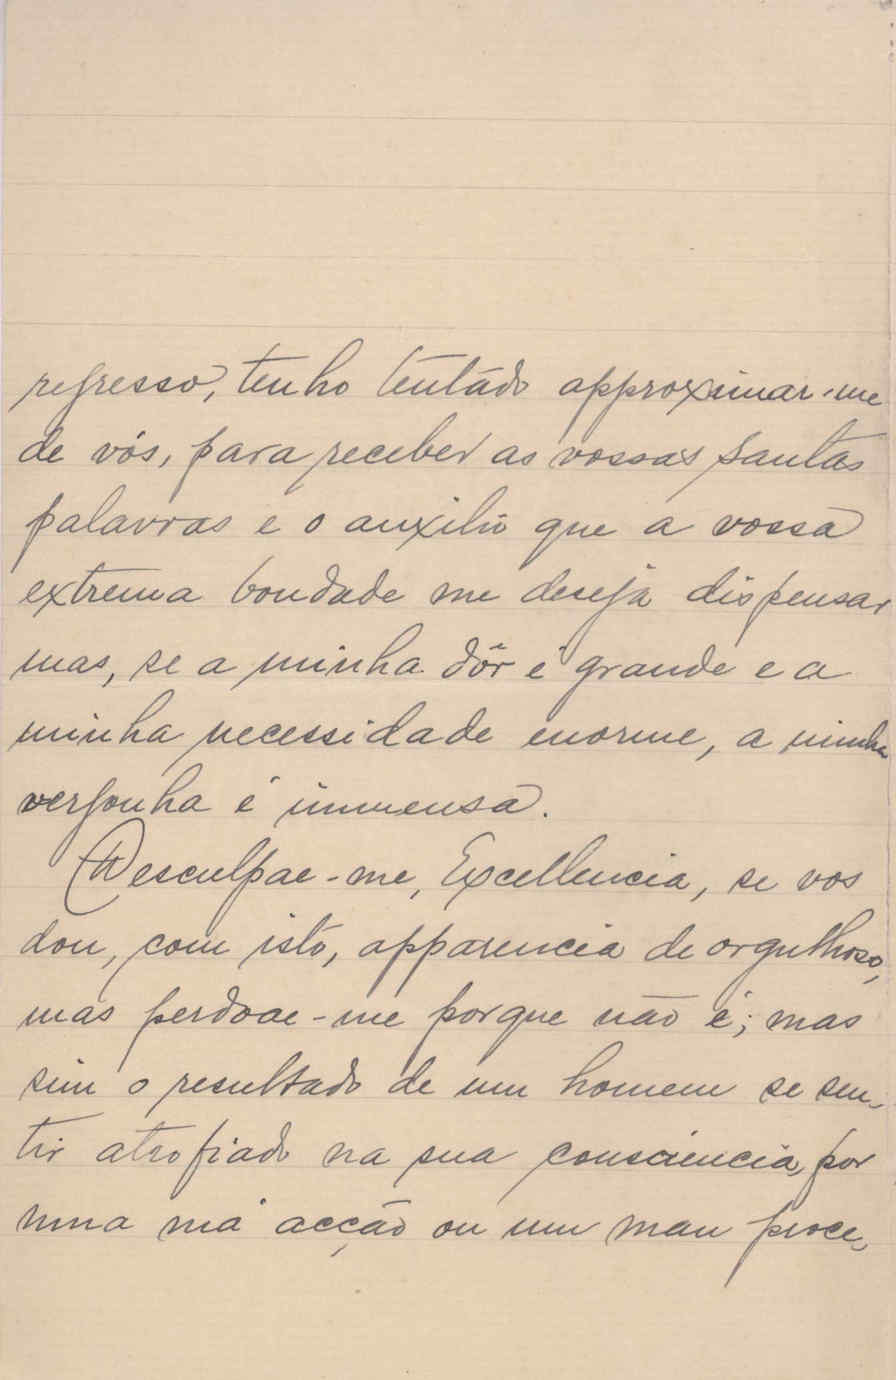 regresso, tenho tentádo approximar-me
de vós, para receber as vossas santas
palavras e o auxilio que a vossa
extrema bondade me deseja dispensar
mas, se a minha dôr é grande e a
minha necessidade enorme, a minha
vergonha é immensa.
Desculpae-me, Excellencia, se vos
dou, com isto, apparencia de orgulhoso,
mas perdoae-me porque não é; mas
sim o resultado de um homem se sen-
tir atrofiado na sua consciencia, por
uma má acção ou um mau proce-